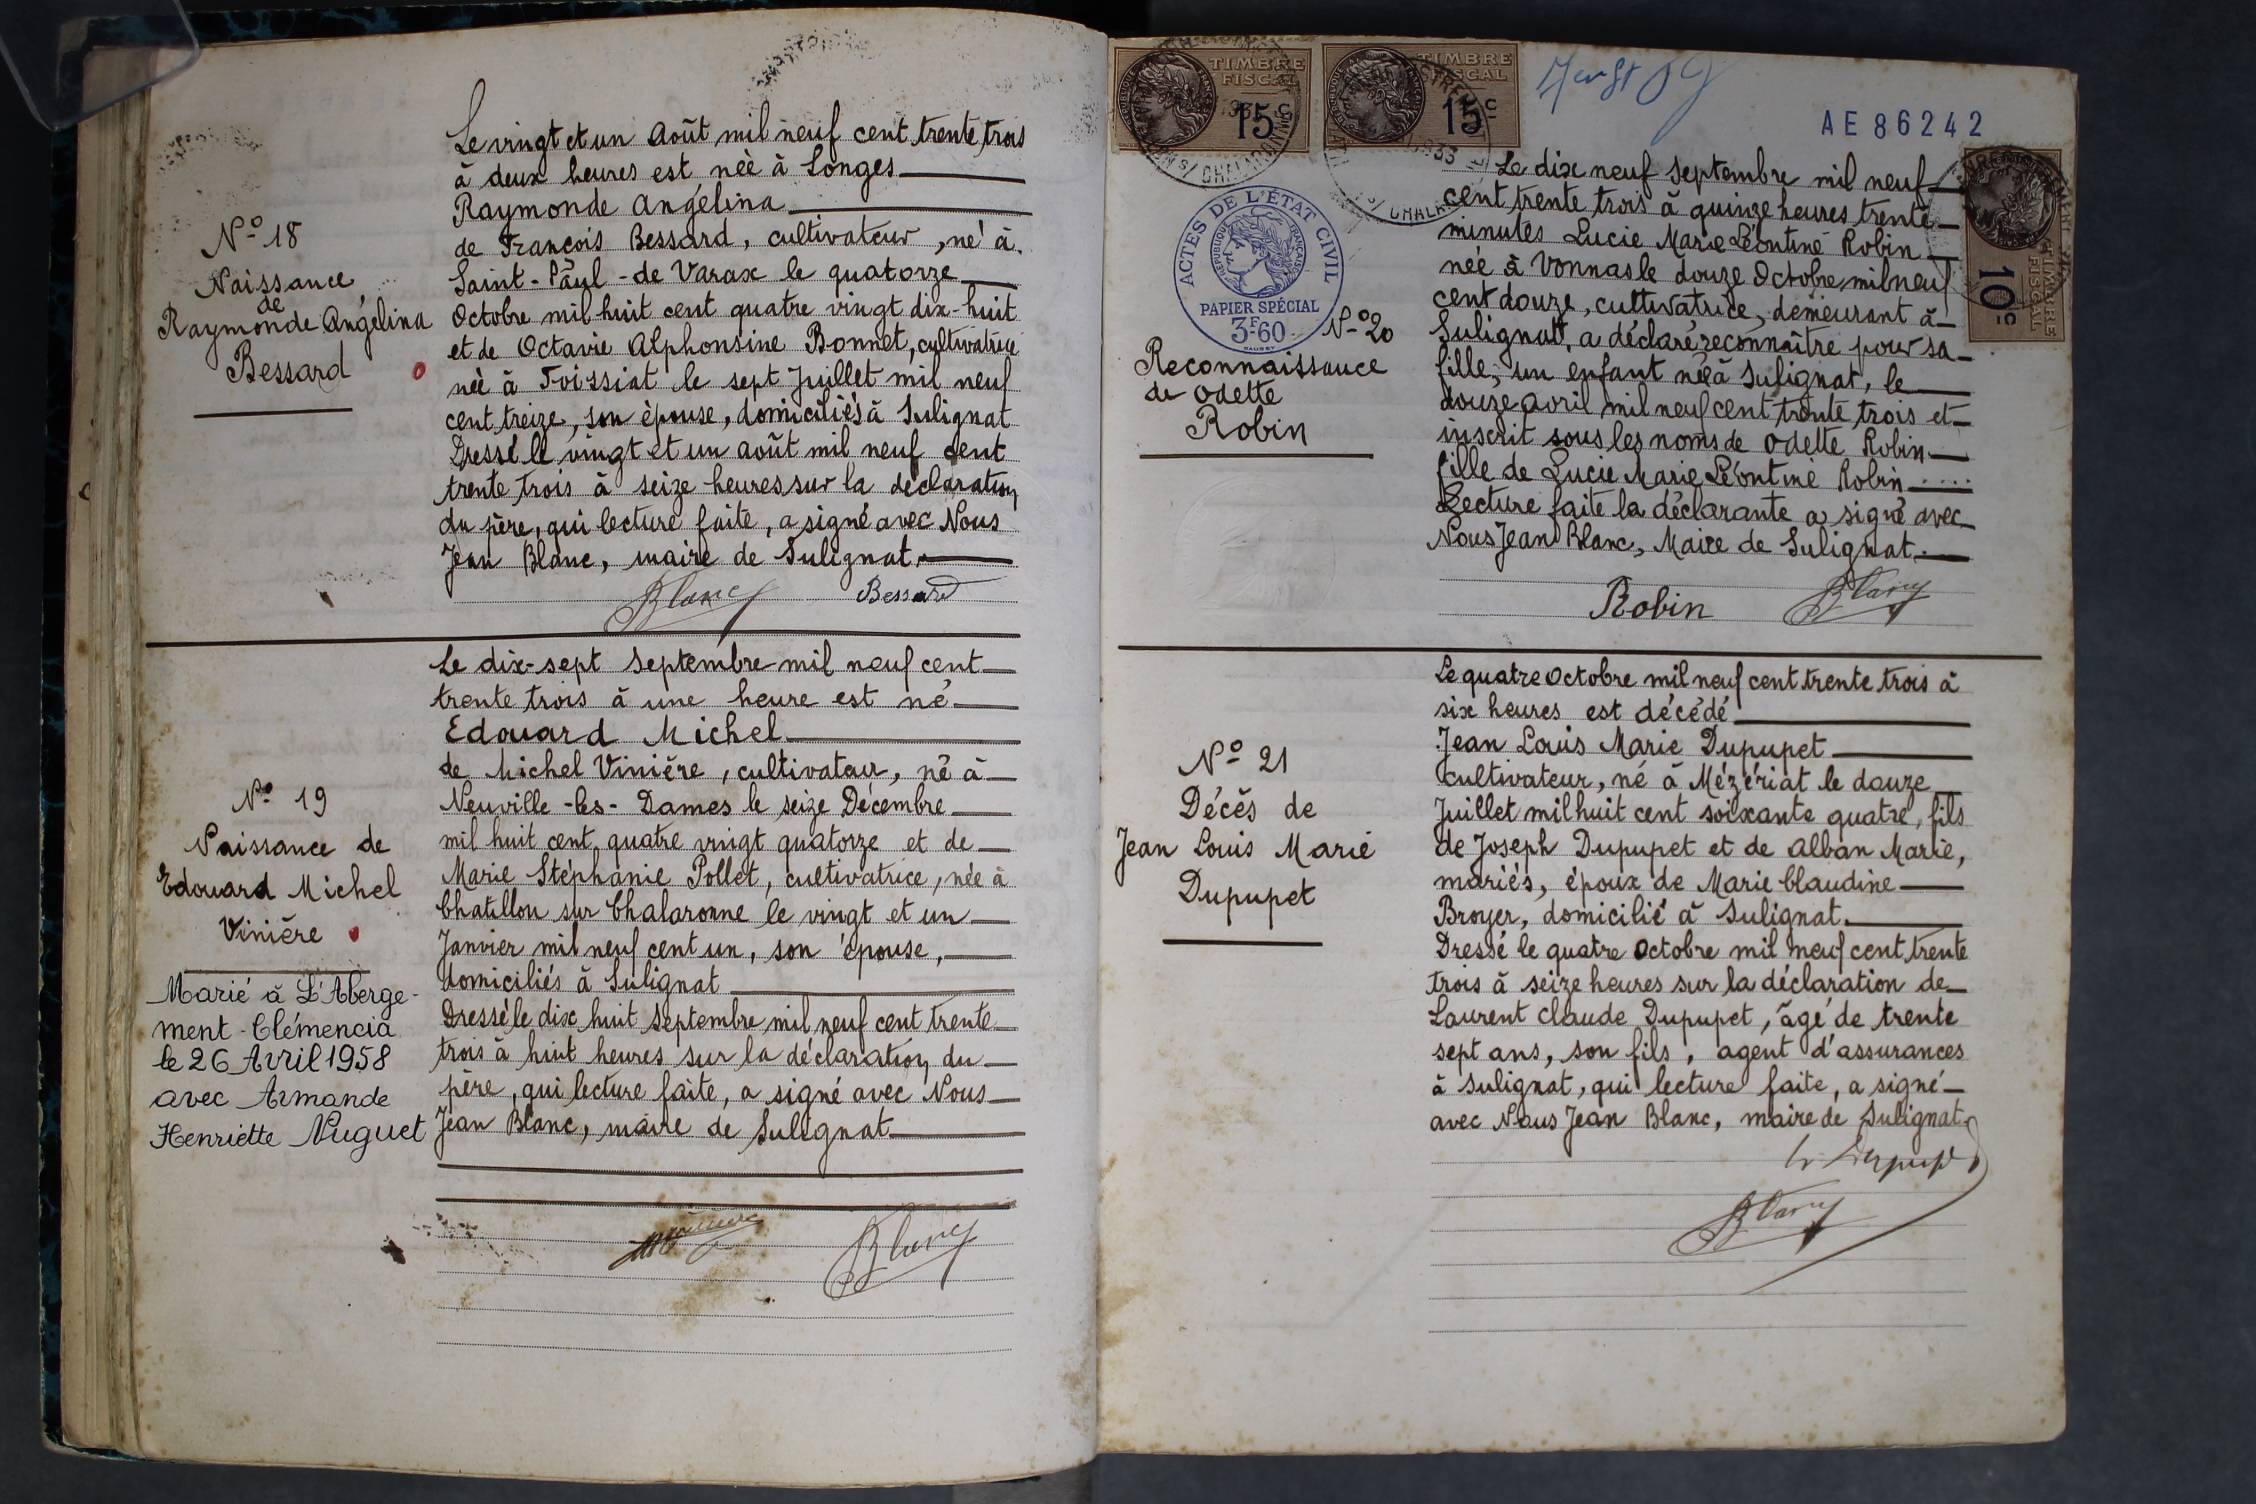 Le vingt et un Août mil neuf cent trente trois
à deux heures est née à Longes
Raymonde Angélina
de François Bessard, cultivateur, né à
Saint-Paul-de Varax le quatorze
Octobre mil huit cent quatre vingt dix-huit
et de Octavie Alphonsine Bonnet, cultivatrice
née à Foissiat le sept Juillet mil neuf
cent treize, son épouse, domiciliés à Sulignat
Dressé le vingt et un août mil neuf cent
trente trois à seize heures sur la déclaration
du père, qui lecture faite, a signé avec Nous
Jean Blanc, maire de Sulignat.
Blanc Bessard
N° 18
Naissance
de
Raymonde Angélina
Bessard
Le dix-sept Septembre mil neuf cent
trente trois à une heure est né
Edouard Michel
de Michel Vinière, cultivateur, né à
Neuville-les-Dames le seize Décembre
mil huit cent quatre vingt quatorze et de
Marie Stéphanie Pollet, cultivatrice, née à
Chatillon sur Chalaronne le vingt et un
Janvier mil neuf cent un, son épouse,
domiciliés à Sulignat
Dressé le dix huit Septembre mil neuf cent trente
trois à huit heures sur la déclaration du
père, qui lecture faite, a signé avec Nous
Jean Blanc, maire de Sulignat
Blanc
N° 19
Naissance de
Edouard Michel
Vinière
Marié à L'Aberge-
ment-Clémencia
le 26 Avril 1958
avec Armande
Henriette Nuguet
TIMBRE
FISCAL
15c
TIMBRE
FISCAL
15c
AE 86242
TIMBRE
FISCAL
10c
ACTES DE L'ÉTAT CIVIL
RÉPUBLIQUE FRANÇAISE
PAPIER SPÉCIAL
3F60
N° 20
Reconnaissance
de Odette
Robin
Le dix neuf Septembre mil neuf
cent trente trois à quinze heures trente
minutes Lucie Marie Léontine Robin
née à Vonnas le douze Octobre mil neuf
cent douze, cultivatrice, demeurant à
Sulignat, a déclaré reconnaître pour sa
fille, un enfant née à Sulignat, le
douze avril mil neuf cent trente trois et
inscrit sous les noms de Odette Robin
fille de Lucie Marie Léontine Robin
Lecture faite la déclarante a signé avec
Nous Jean Blanc, Maire de Sulignat.
Robin Blanc
N° 21
Décès de
Jean Louis Marie
Dupupet
Le quatre Octobre mil neuf cent trente trois à
six heures est décédé
Jean Louis Marie Dupupet
cultivateur, né à Mézériat le douze
Juillet mil huit cent soixante quatre, fils
de Joseph Dupupet et de Alban Marie,
mariés, époux de Marie Claudine
Broyer, domicilié à Sulignat.
Dressé le quatre Octobre mil neuf cent trente
trois à seize heures sur la déclaration de
Laurent Claude Dupupet, âgé de trente
sept ans, son fils, agent d'assurances
à Sulignat, qui lecture faite, a signé
avec Nous Jean Blanc, maire de Sulignat.
Dupupet
Blanc